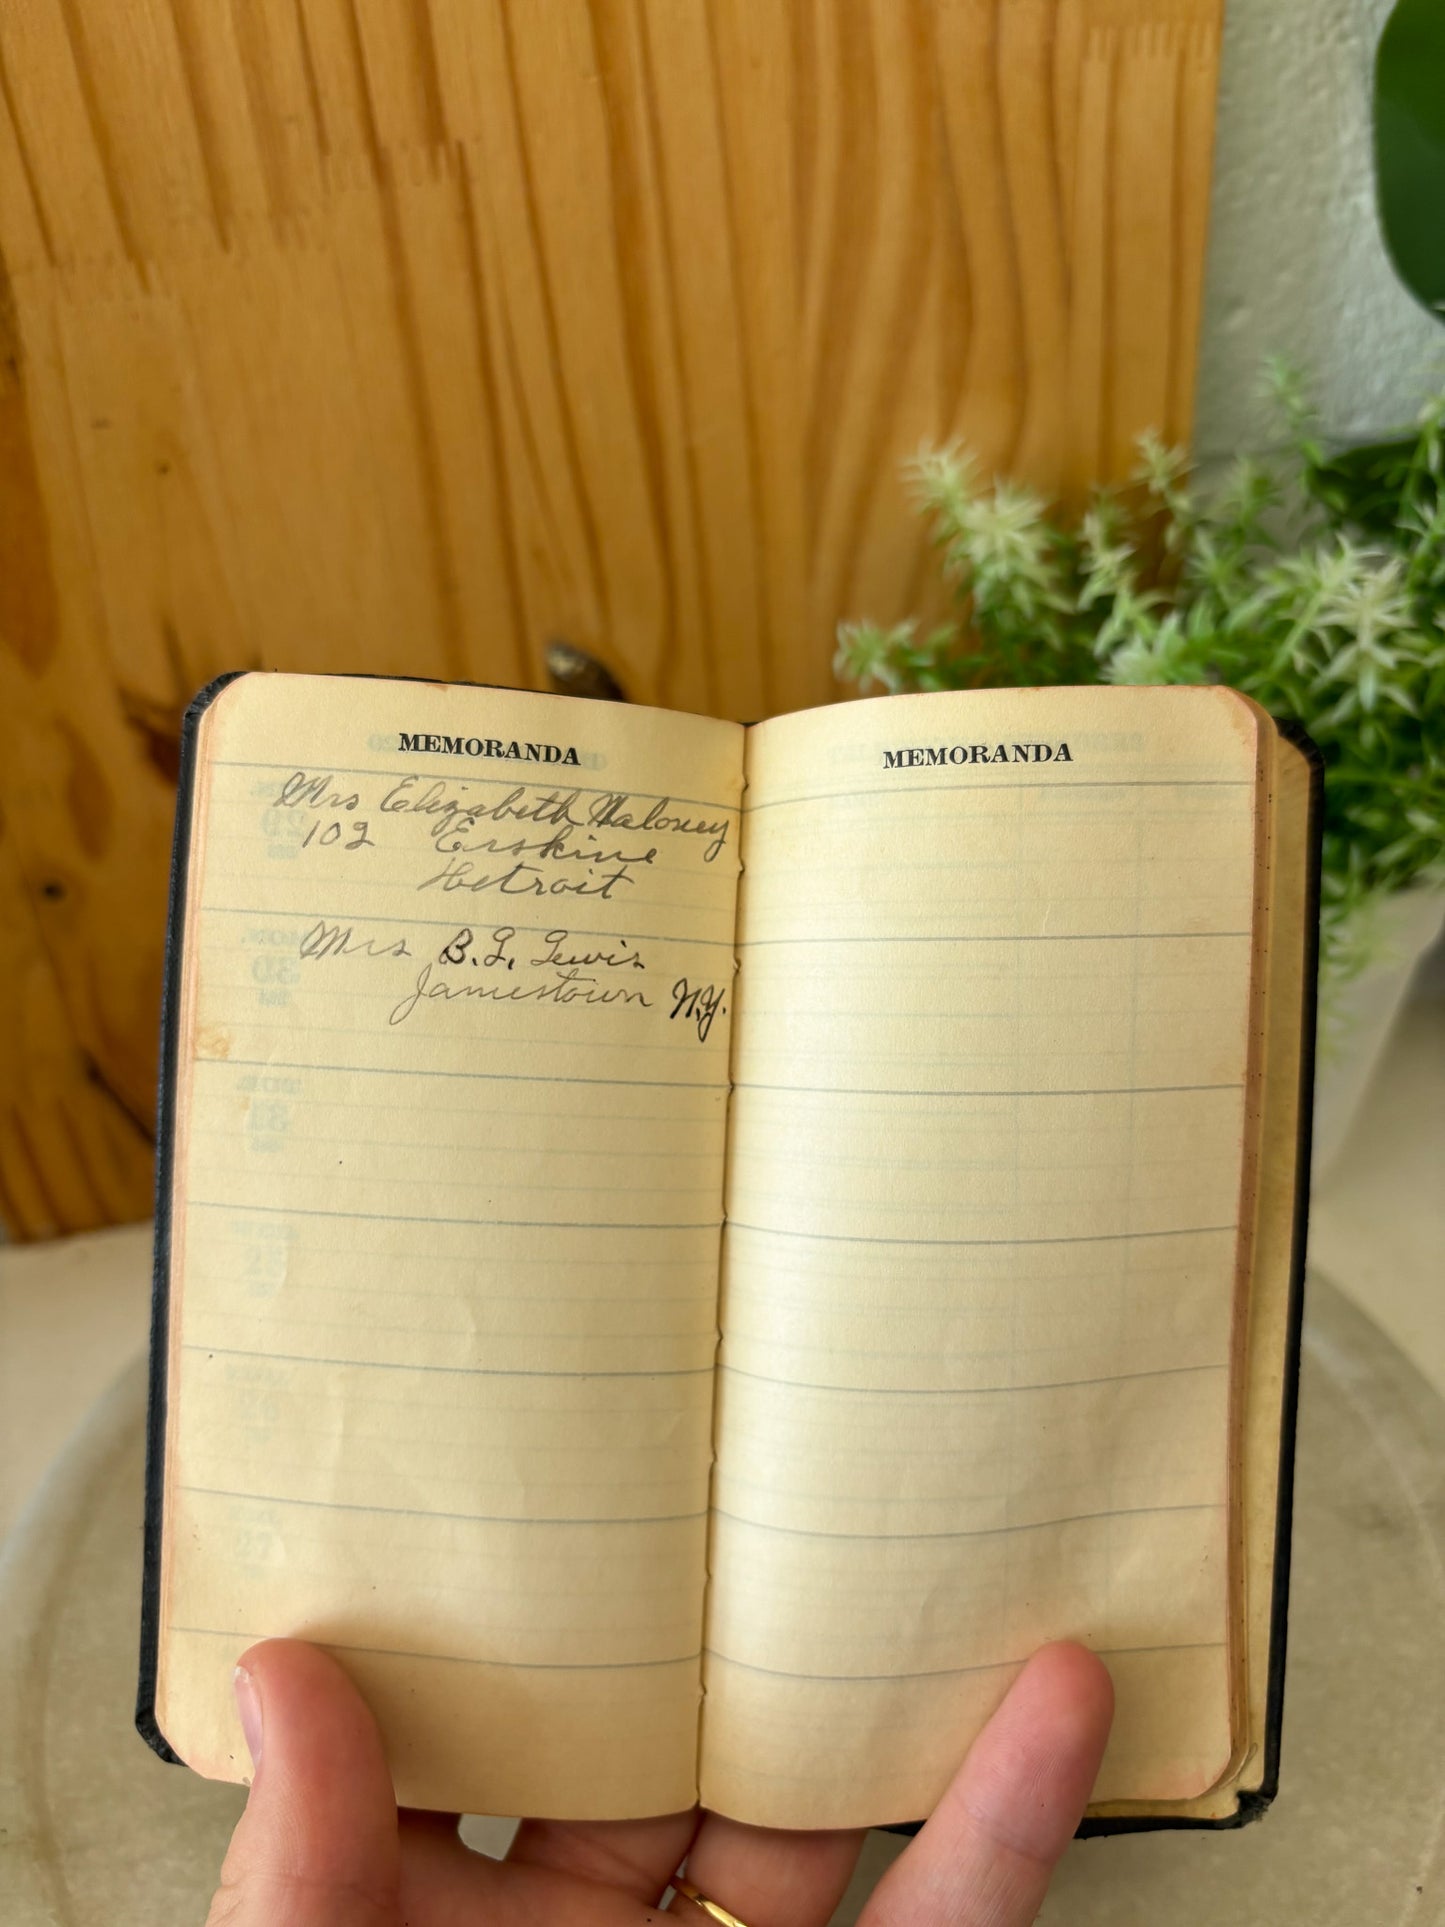 MEMORANDA
Mrs Elizabeth Maloney
102 Erskine
Detroit
Mrs B. G. Lewis
Jamestown N.Y.
MEMORANDA